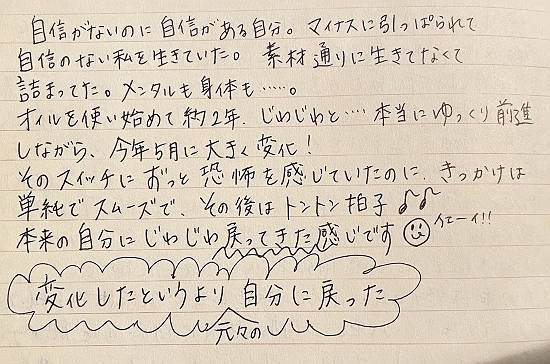 自信がないのに自信がある自分。マイナスに引っぱられて
自信のない私を生きていた。素材通りに生きてなくて
詰まってた。メンタルも身体も……。
オイルを使い始めて約2年。じわじわと…本当にゆっくり前進
しながら、今年5月に大きく変化!
そのスイッチにずっと恐怖を感じていたのに、きっかけは
単純でスムーズで、その後はトントン拍子♪♪
本来の自分にじわじわ戻ってきた感じです イエーイ!!
変化したというより自分に戻った
元々の